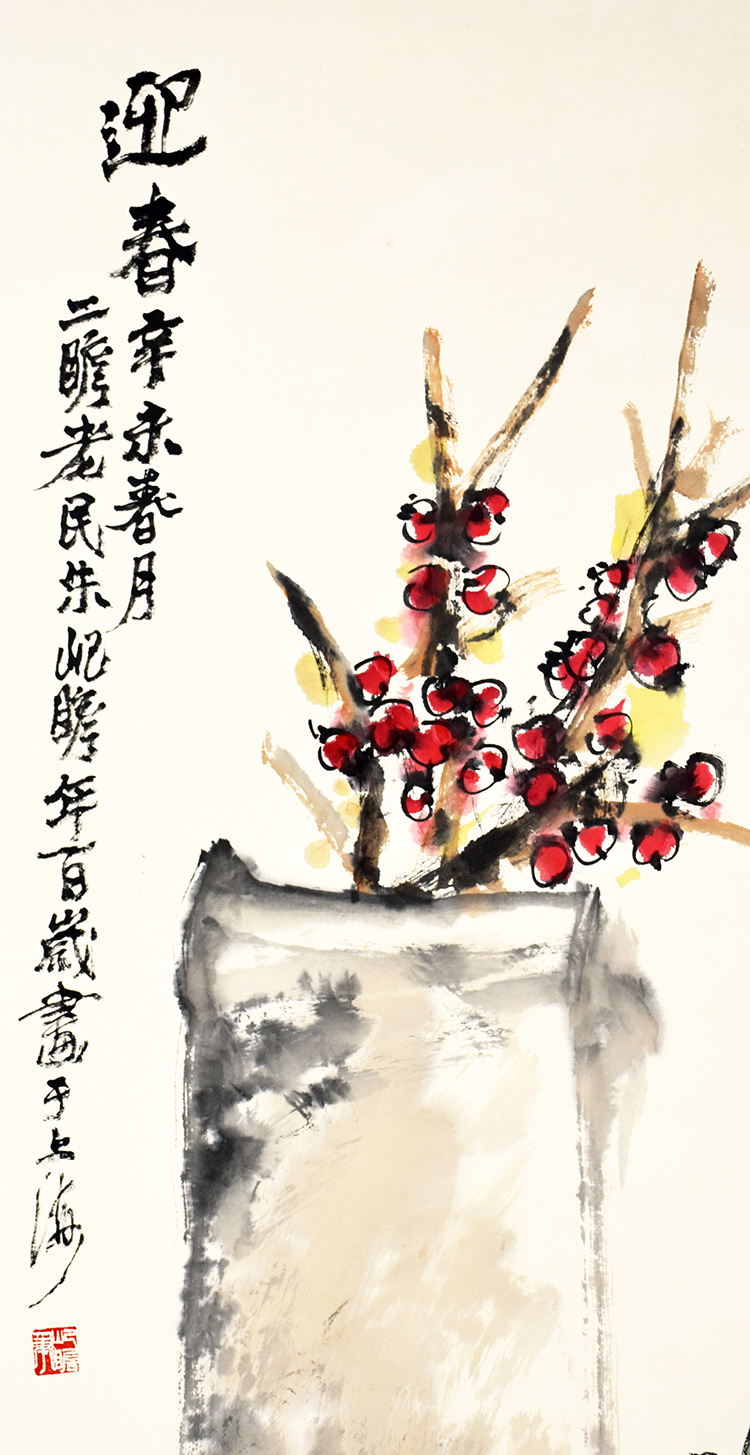 迎春 辛未春月
二瞻老民朱屺瞻年百歲畫于上海
屺瞻